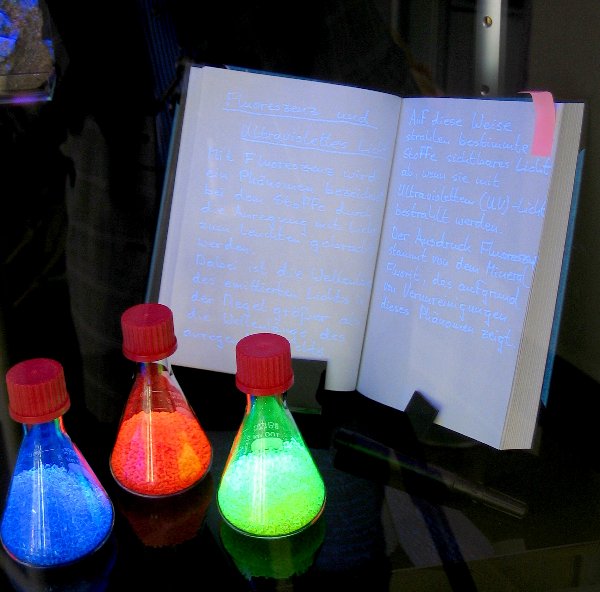 Fluoreszenz und
Ultraviolettes
Mit Fluoreszenz wird
ein Phänomen
bei dem Stoffe durch
die Anregung mit Licht
zum Leuchten gebracht
werden.
Dabei ist die
des emittierten Lichts
der Regel größer
die des
Auf diese Weise
strahlen bestimmte
Stoffe sichtbares Licht
ab, wenn sie mit
ultraviolettem (UV)-Licht
bestrahlt werden.
Der Ausdruck
stammt von dem Mineral
Fluorit, das aufgrund
von Verunreinigungen
dieses Phänomen zeigt.